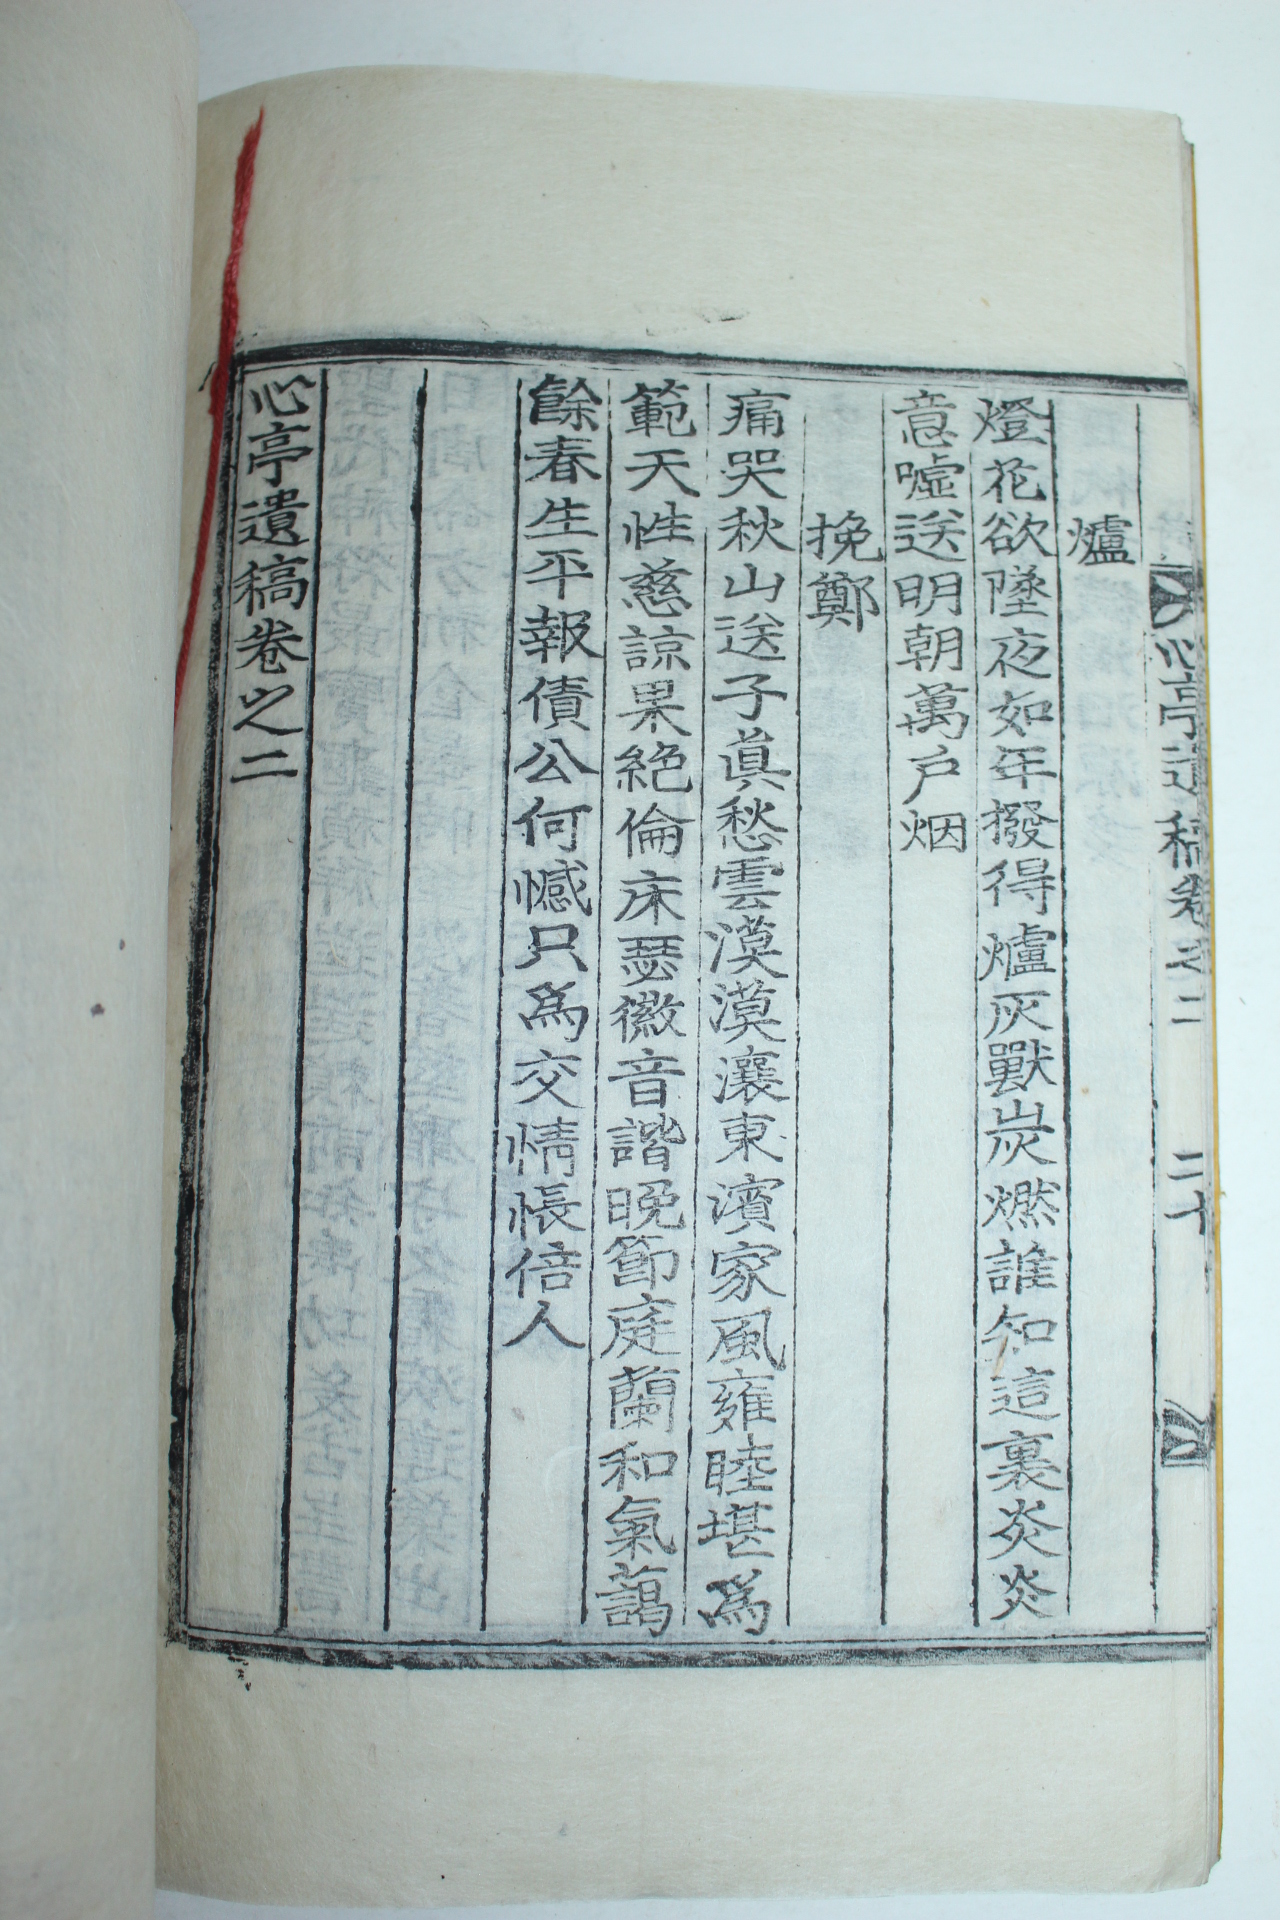 心亭遺稿卷之二 二十
爐
燈花欲墜夜如年撥得爐灰獸炭燃誰知這裏炎炎
意噓送明朝萬戶烟
挽鄭
痛哭秋山送子眞愁雲漠漠瀼東濱家風雍睦堪爲
範天性慈諒果絶倫床瑟徽音諧晩節庭蘭和氣藹
餘春生平報債公何憾只爲交情悵倍人
心亭遺稿卷之二